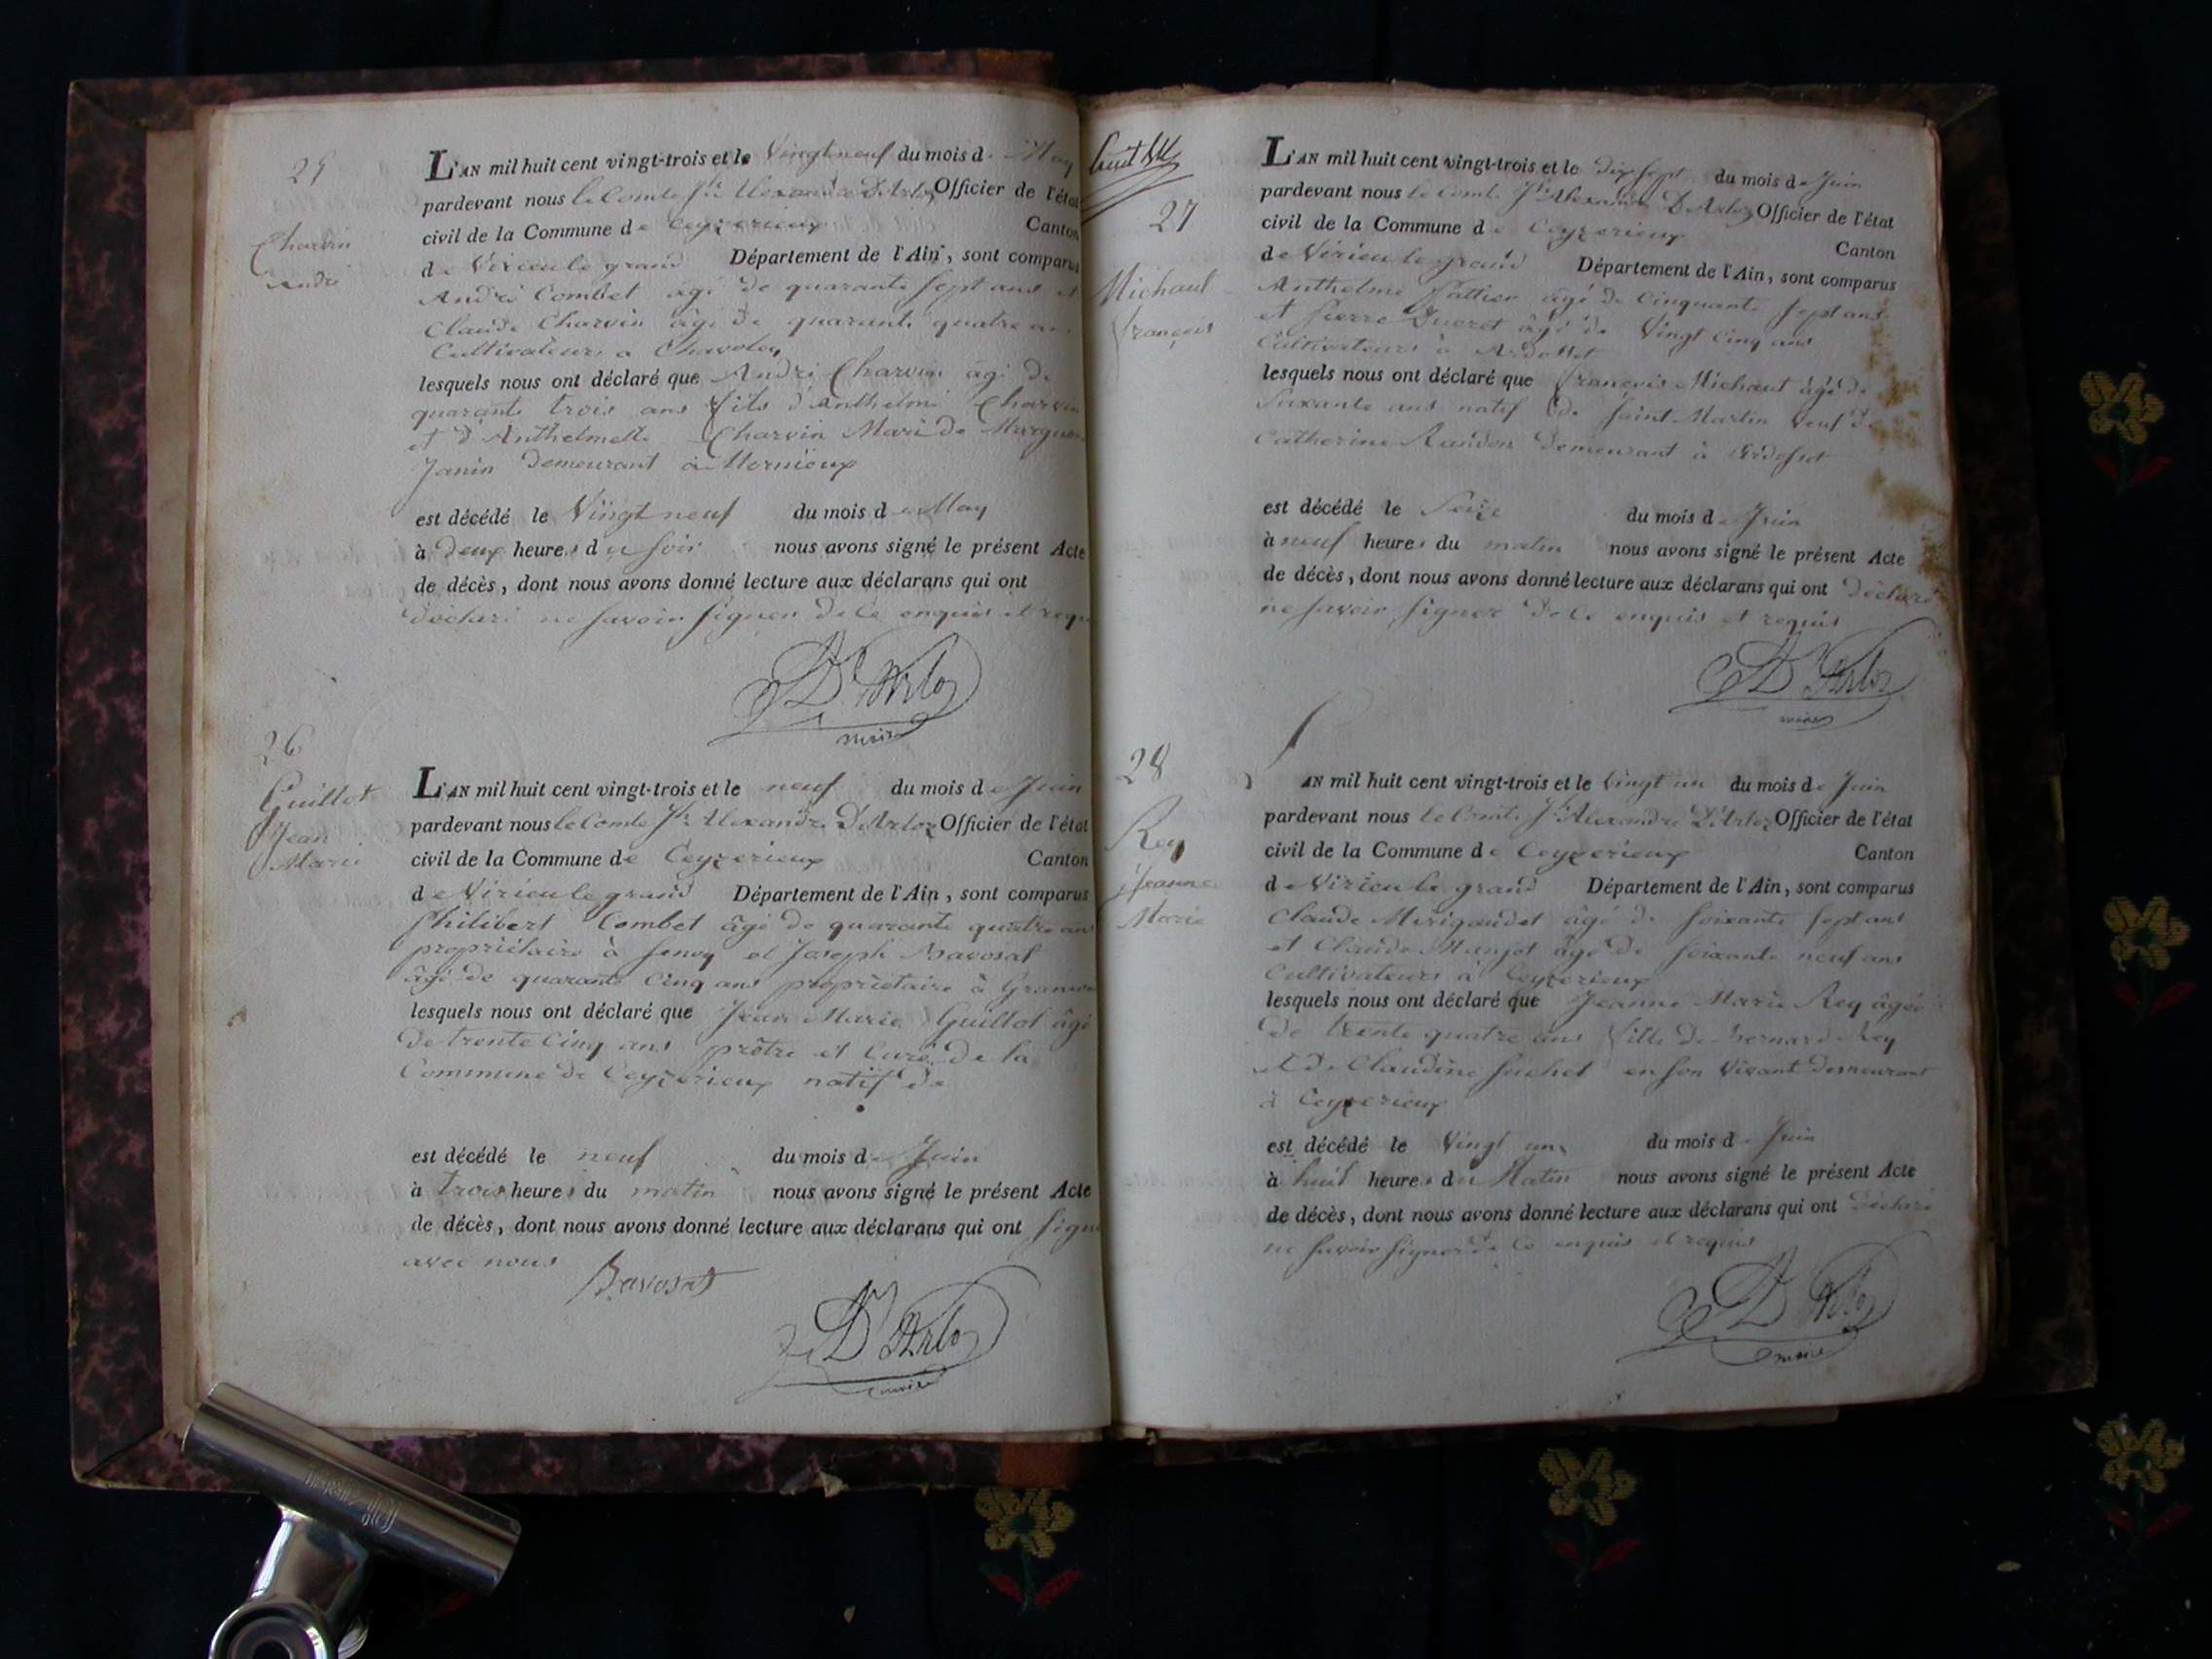 25
Charvin
André
L'AN mil huit cent vingt-trois et le Vingt neuf du mois de May
pardevant nous le Comte Jh Alexandre D'Arloz Officier de l'état
civil de la Commune de Ceyzerieux Canton
de Virieu le grand Département de l'Ain, sont comparus
André Combet âgé de quarante sept ans et
Claude Charvin âgé de quarante quatre ans
Cultivateurs a Chavoley
lesquels nous ont déclaré que André Charvin âgé de
quarante trois ans fils d'Anthelme Charvin
et d'Anthelmette Charvin Mari de
Janin demeurant à Mornieux
est décédé le Vingt neuf du mois de May
à deux heures du soir nous avons signé le présent Acte
de décès, dont nous avons donné lecture aux déclarans qui ont
déclaré ne savoir signer de ce enquis et requis
D'Arloz
maire
26
Guillot
Jean
Marie
L'AN mil huit cent vingt-trois et le neuf du mois de Juin
pardevant nous le Comte Jh Alexandre D'Arloz Officier de l'état
civil de la Commune de Ceyzerieux Canton
de Virieu le grand Département de l'Ain, sont comparus
Philibert Combet âgé de quarante quatre ans
propriétaire à et Joseph Bavosat
âgé de quarante Cinq ans propriétaire à
lesquels nous ont déclaré que Jean Marie Guillot âgé
de trente Cinq ans prêtre et Curé de la
Commune de Ceyzerieux natif de
est décédé le neuf du mois de Juin
à trois heures du matin nous avons signé le présent Acte
de décès, dont nous avons donné lecture aux déclarans qui ont signé
avec nous
Bavosat
D'Arloz
maire
27
Michaut
François
L'AN mil huit cent vingt-trois et le dix sept du mois de Juin
pardevant nous le Comte Jh Alexandre D'Arloz Officier de l'état
civil de la Commune de Ceyzerieux Canton
de Virieu le grand Département de l'Ain, sont comparus
Anthelme âgé de Cinquante sept ans
et Pierre Ducret âgé de Vingt Cinq ans
Cultivateurs à Ardosset
lesquels nous ont déclaré que François Michaut âgé de
Soixante ans natif de Saint Martin Veuf de
Catherine Randon demeurant à Ardosset
est décédé le Seize du mois de Juin
à neuf heures du matin nous avons signé le présent Acte
de décès, dont nous avons donné lecture aux déclarans qui ont déclaré
ne savoir signer de ce enquis et requis
D'Arloz
maire
28
Rey
Jeanne
Marie
AN mil huit cent vingt-trois et le Vingt un du mois de Juin
pardevant nous le Comte Jh Alexandre D'Arloz Officier de l'état
civil de la Commune de Ceyzerieux Canton
de Virieu le grand Département de l'Ain, sont comparus
Claude Merigaudet âgé de soixante sept ans
et Claude Manjot âgé de soixante neuf ans
Cultivateurs à Ceyzerieux
lesquels nous ont déclaré que Jeanne Marie Rey âgée
de trente quatre ans fille de bernard Rey
et de Claudine Suchet en son Vivant demeurant
à Ceyzerieux
est décédé le Vingt un du mois de Juin
à huit heures du Matin nous avons signé le présent Acte
de décès, dont nous avons donné lecture aux déclarans qui ont déclaré
ne savoir signer de ce enquis et requis
D'Arloz
maire